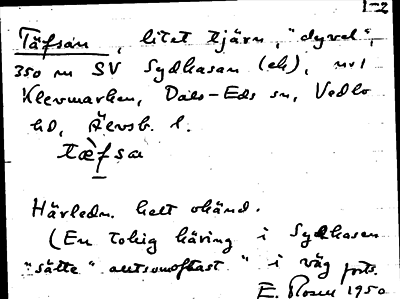 1-2
Täfsån, litet tjärn, "dyvel",
350 m SV Sydkasan (ek), nr 1
Klevmarken, Dals-Eds sn, Vedbo
hd, Älvsb. l.
tæ̀fsa
Härledn. helt okänd.
(En tokig käring i Sydkasen
"sätte" "i väg forts.
E. Rosell 1950